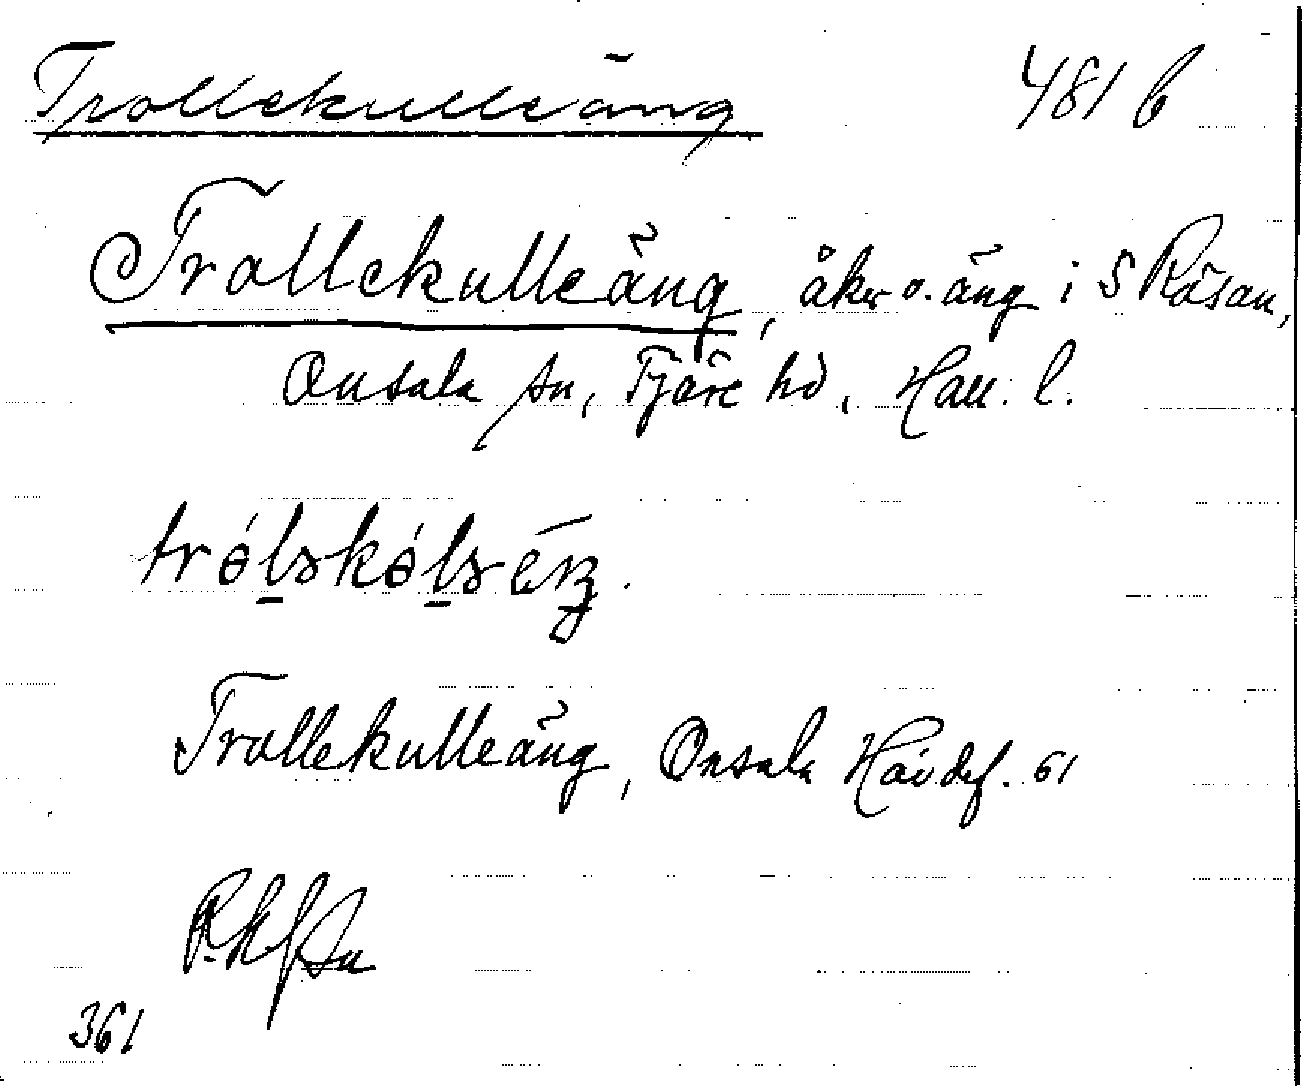 Trollekulleäng 481 b
Trollekulleäng, åker o. äng i S Råsan,
Onsala sn, Fjäre hd, Hall. l.
Trollekulleäng, Onsala Hävdef. 61
361